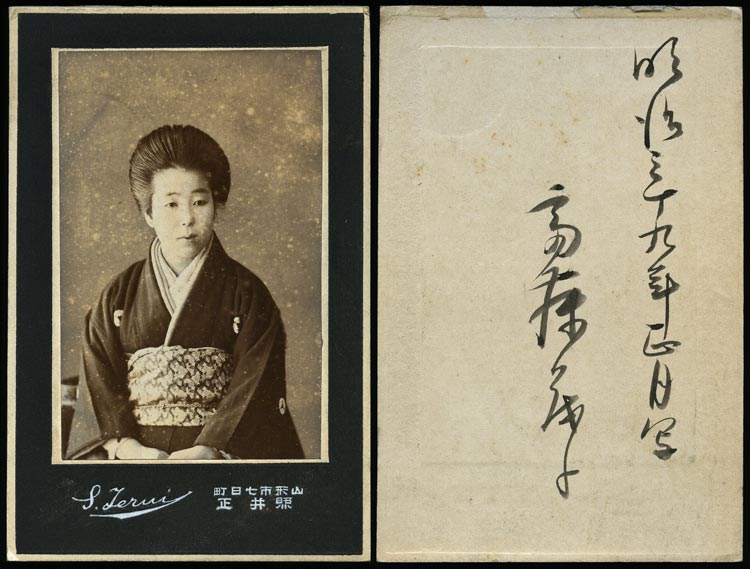 S. Terui
山形市七日町
照井正
明治三十九年正月写
高